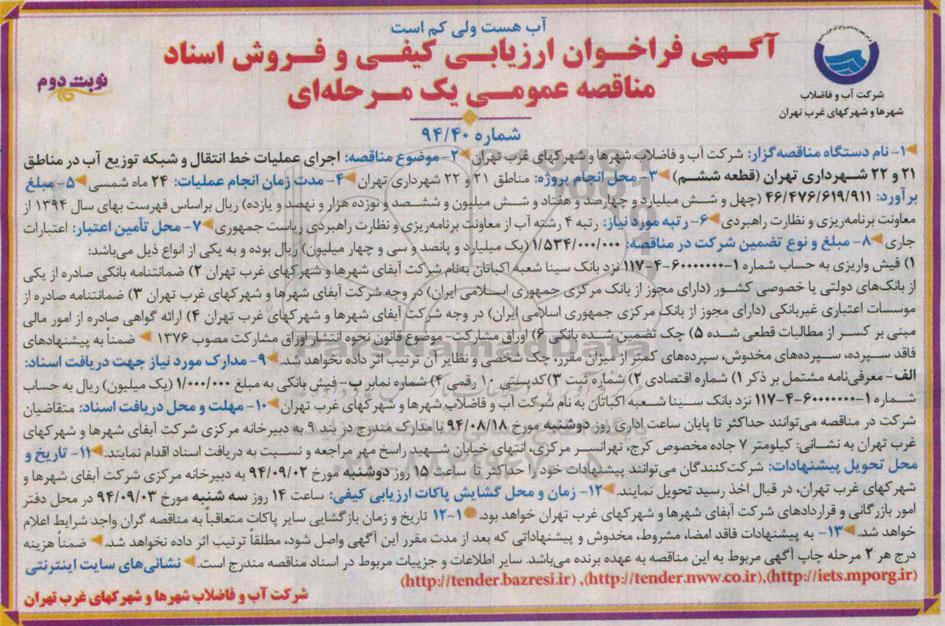 آب هست ولی کم است
آگهی فراخوان ارزیابی کیفی و فروش اسناد
مناقصه عمومی یک مرحله‌ای
نوبت دوم
شرکت آب و فاضلاب
شهرها و شهرکهای غرب تهران
شماره ۹۴/۴۰
۱- نام دستگاه مناقصه‌گزار: شرکت آب و فاضلاب شهرها و شهرکهای غرب تهران ۲- موضوع مناقصه: اجرای عملیات خط انتقال و شبکه توزیع آب در مناطق
۲۱ و ۲۲ شهرداری تهران (قطعه ششم) ۳- محل انجام پروژه: مناطق ۲۱ و ۲۲ شهرداری تهران ۴- مدت زمان انجام عملیات: ۲۴ ماه شمسی ۵- مبلغ
برآورد: ۴۶/۴۷۶/۶۱۹/۹۱۱ (چهل و شش میلیارد و چهارصد و هفتاد و شش میلیون و ششصد و نوزده هزار و نهصد و یازده) ریال براساس فهرست بهای سال ۱۳۹۴ از
معاونت برنامه‌ریزی و نظارت راهبردی ۶- رتبه مورد نیاز: رتبه ۴ رشته آب از معاونت برنامه‌ریزی و نظارت راهبردی ریاست جمهوری ۷- محل تأمین اعتبار: اعتبارات
جاری ۸- مبلغ و نوع تضمین شرکت در مناقصه: ۱/۵۳۴/۰۰۰/۰۰۰ (یک میلیارد و پانصد و سی و چهار میلیون) ریال بوده و به یکی از انواع ذیل می‌باشد:
۱) فیش واریزی به حساب شماره ۱-۶۰۰۰۰۰۰۰-۴-۱۱۷ نزد بانک سینا شعبه اکباتان به‌نام شرکت آبفای شهرها و شهرکهای غرب تهران ۲) ضمانتنامه بانکی صادره از یکی
از بانک‌های دولتی یا خصوصی کشور (دارای مجوز از بانک مرکزی جمهوری اسلامی ایران) در وجه شرکت آبفای شهرها و شهرکهای غرب تهران ۳) ضمانتنامه صادره از
موسسات اعتباری غیربانکی (دارای مجوز از بانک مرکزی جمهوری اسلامی ایران) در وجه شرکت آبفای شهرها و شهرکهای غرب تهران ۴) ارائه گواهی صادره از امور مالی
مبنی بر کسر از مطالبات قطعی شده ۵) چک تضمین شده بانکی ۶) اوراق مشارکت- موضوع قانون نحوه انتشار اوراق مشارکت مصوب ۱۳۷۶ ضمناً به پیشنهادهای
فاقد سپرده، سپرده‌های مخدوش، سپرده‌های کمتر از میزان مقرر، چک شخصی و نظایر آن ترتیب اثر داده نخواهد شد. ۹- مدارک مورد نیاز جهت دریافت اسناد:
الف- معرفی‌نامه مشتمل بر ذکر ۱) شماره اقتصادی ۲) شماره ثبت ۳) کدپستی ۱۰ رقمی ۴) شماره نمابر ب- فیش بانکی به مبلغ ۱/۰۰۰/۰۰۰ (یک میلیون) ریال به حساب
شماره ۱-۶۰۰۰۰۰۰۰-۴-۱۱۷ نزد بانک سینا شعبه اکباتان به نام شرکت آب و فاضلاب شهرها و شهرکهای غرب تهران ۱۰- مهلت و محل دریافت اسناد: متقاضیان
شرکت در مناقصه می‌توانند حداکثر تا پایان ساعت اداری روز دوشنبه مورخ ۹۴/۰۸/۱۸ با مدارک مندرج در بند ۹ به دبیرخانه مرکزی شرکت آبفای شهرها و شهرکهای
غرب تهران به نشانی: کیلومتر ۷ جاده مخصوص کرج، تهرانسر مرکزی، انتهای خیابان شهید راسخ مهر مراجعه و نسبت به دریافت اسناد اقدام نمایند. ۱۱- تاریخ و
محل تحویل پیشنهادات: شرکت‌کنندگان می‌توانند پیشنهادات خود را حداکثر تا ساعت ۱۵ روز دوشنبه مورخ ۹۴/۰۹/۰۲ به دبیرخانه مرکزی شرکت آبفای شهرها و
شهرکهای غرب تهران، در قبال اخذ رسید تحویل نمایند. ۱۲- زمان و محل گشایش پاکات ارزیابی کیفی: ساعت ۱۴ روز سه شنبه مورخ ۹۴/۰۹/۰۳ در محل دفتر
امور بازرگانی و قراردادهای شرکت آبفای شهرها و شهرکهای غرب تهران خواهد بود. ۱-۱۲ تاریخ و زمان بازگشایی سایر پاکات متعاقباً به مناقصه گران واجد شرایط اعلام
خواهد شد. ۱۳- به پیشنهادات فاقد امضاء، مشروط، مخدوش و پیشنهاداتی که بعد از مدت مقرر این آگهی واصل شود، مطلقا ترتیب اثر داده نخواهد شد. ضمناً هزینه
درج هر ۲ مرحله چاپ آگهی مربوط به این مناقصه به عهده برنده می‌باشد. سایر اطلاعات و جزییات مربوط در اسناد مناقصه مندرج است. نشانی‌های سایت اینترنتی
(http://tender.bazresi.ir) ،(http://tender.nww.co.ir)،(http://iets.mporg.ir)
شرکت آب و فاضلاب شهرها و شهرکهای غرب تهران